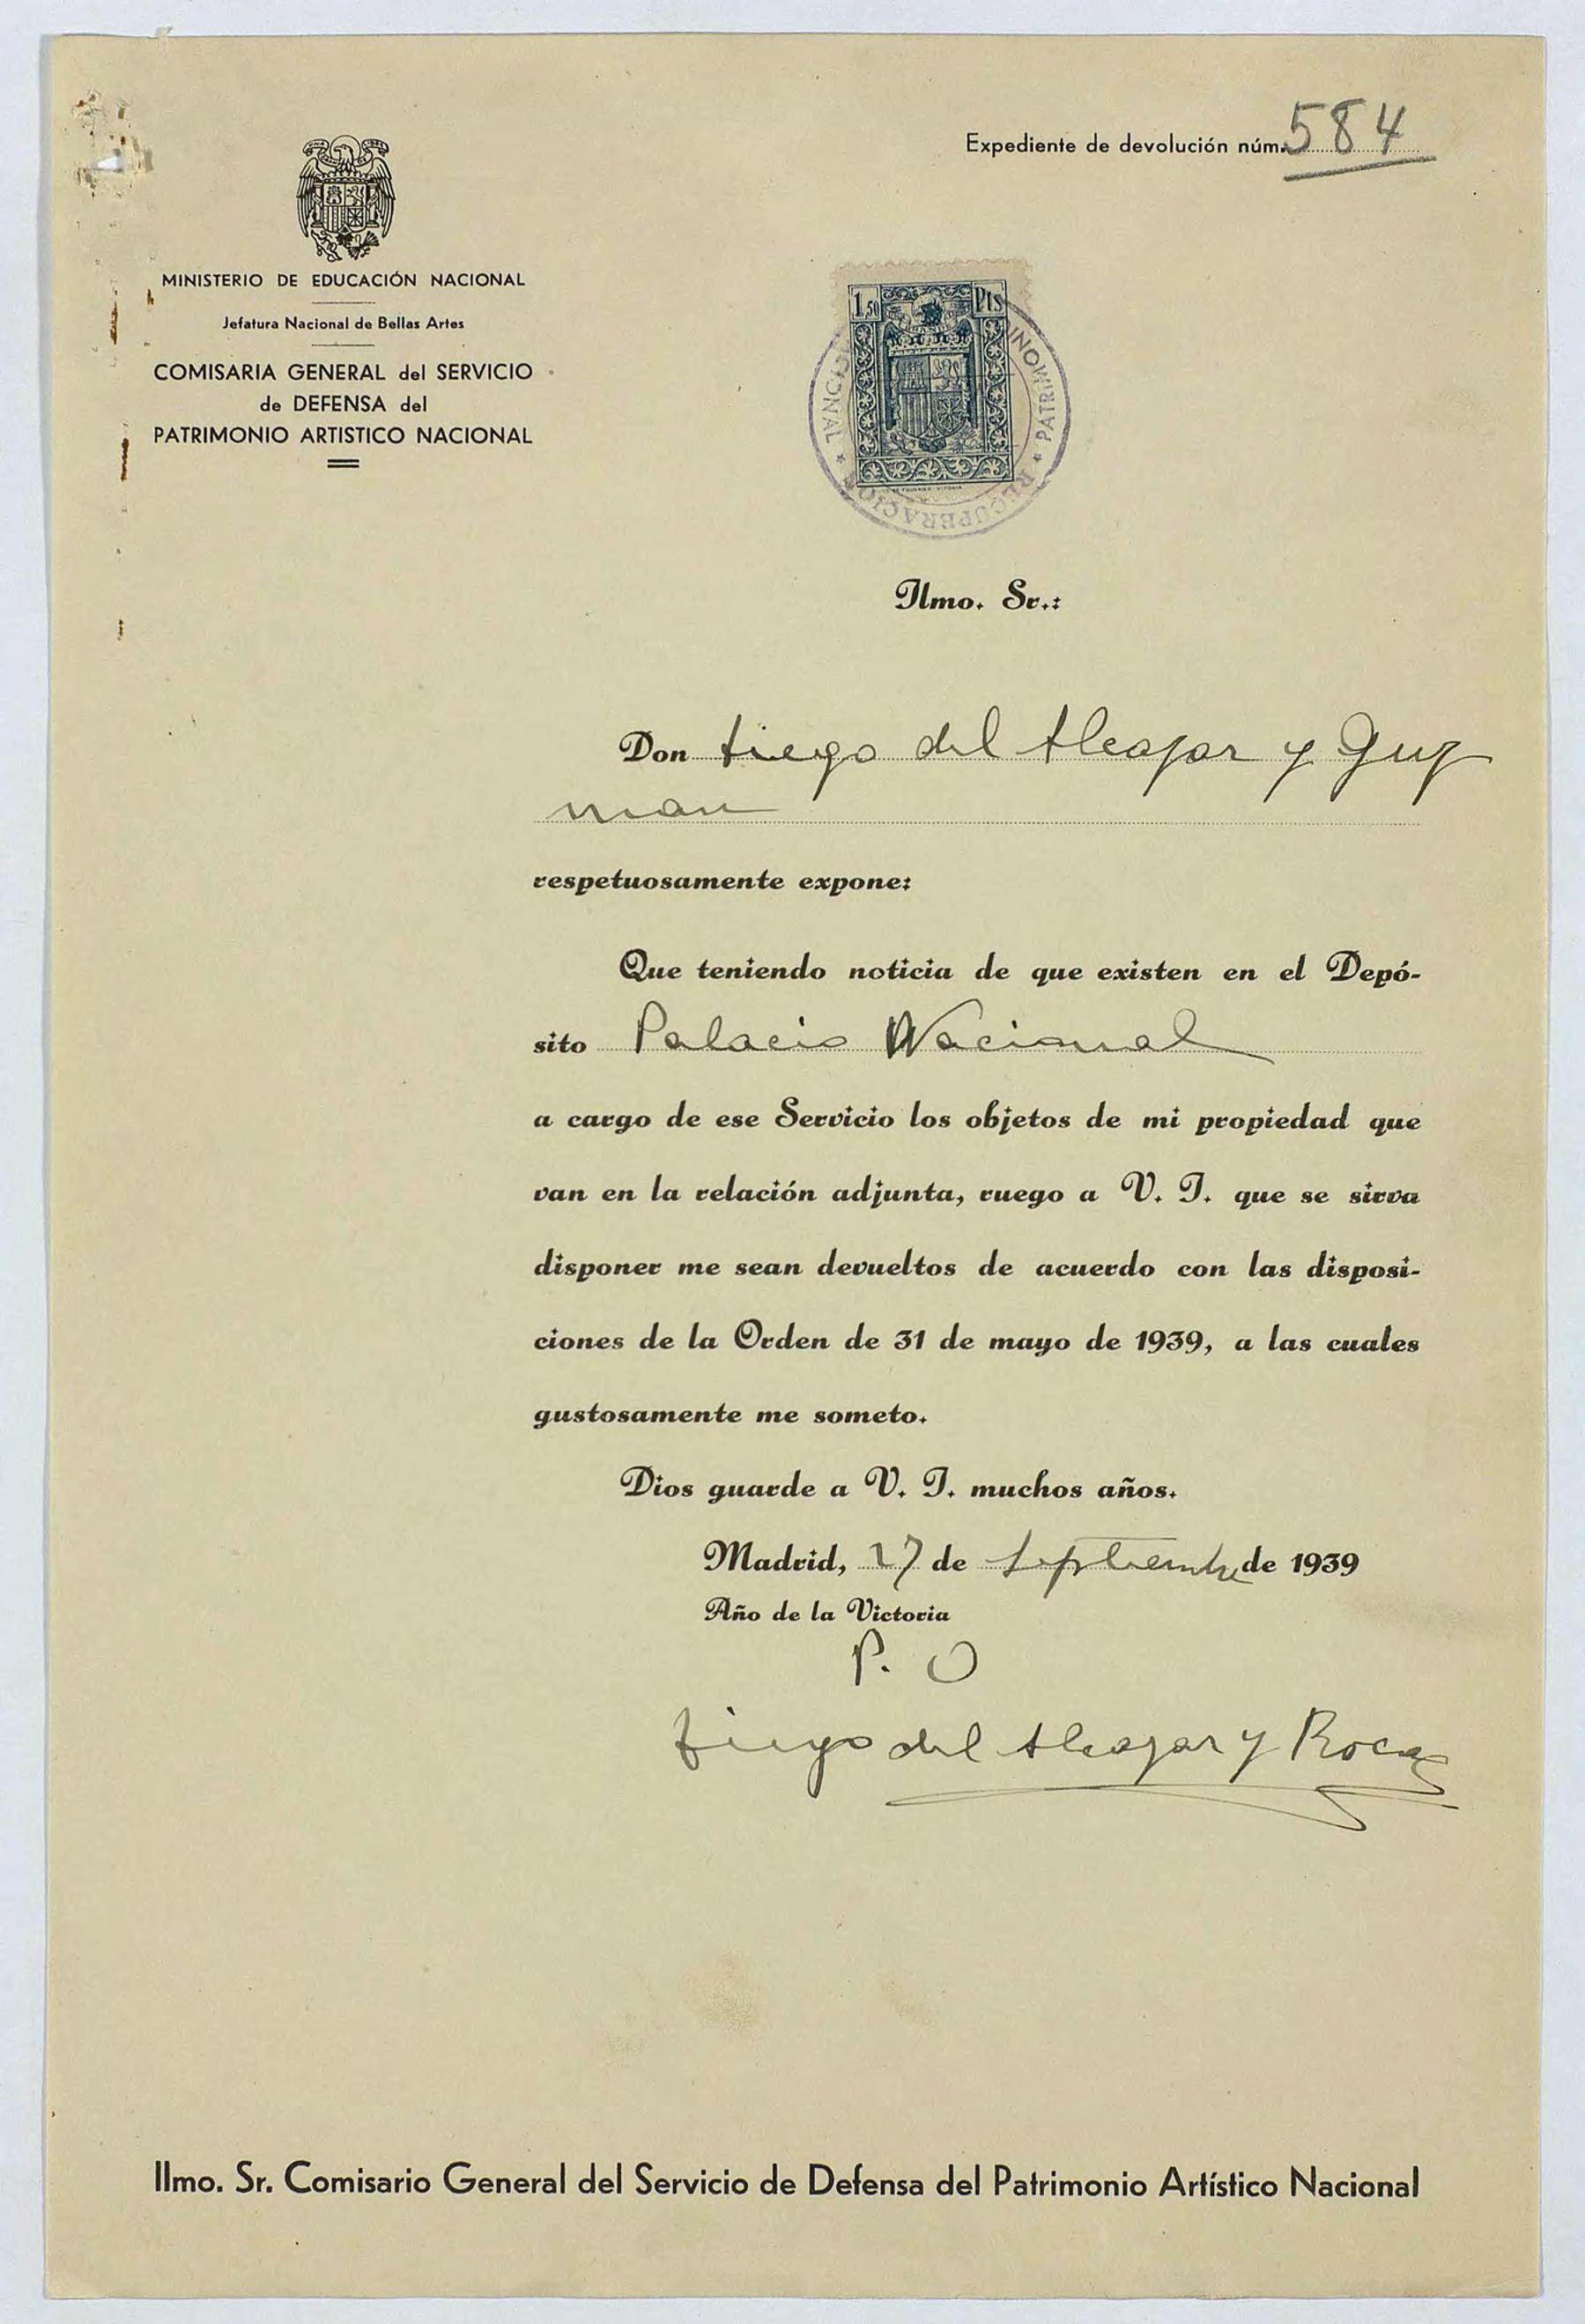 Expediente de devolución núm. 584
MINISTERIO DE EDUCACIÓN NACIONAL
Jefatura Nacional de Bellas Artes
COMISARIA GENERAL del SERVICIO
de DEFENSA del
PATRIMONIO ARTISTICO NACIONAL
1,50 Pts
RECUPERACION
Ilmo. Sr.:
Don Diego del Alcazar y Guz
man
respetuosamente expone:
Que teniendo noticia de que existen en el Depó-
sito Palacio Nacional
a cargo de ese Servicio los objetos de mi propiedad que
van en la relación adjunta, ruego a V. I. que se sirva
disponer me sean devueltos de acuerdo con las disposi-
ciones de la Orden de 31 de mayo de 1939, a las cuales
gustosamente me someto.
Dios guarde a V. I. muchos años.
Madrid, 27 de Septiembre de 1939
Año de la Victoria
P. O
Diego del Alcazar y Roca
Ilmo. Sr. Comisario General del Servicio de Defensa del Patrimonio Artístico Nacional